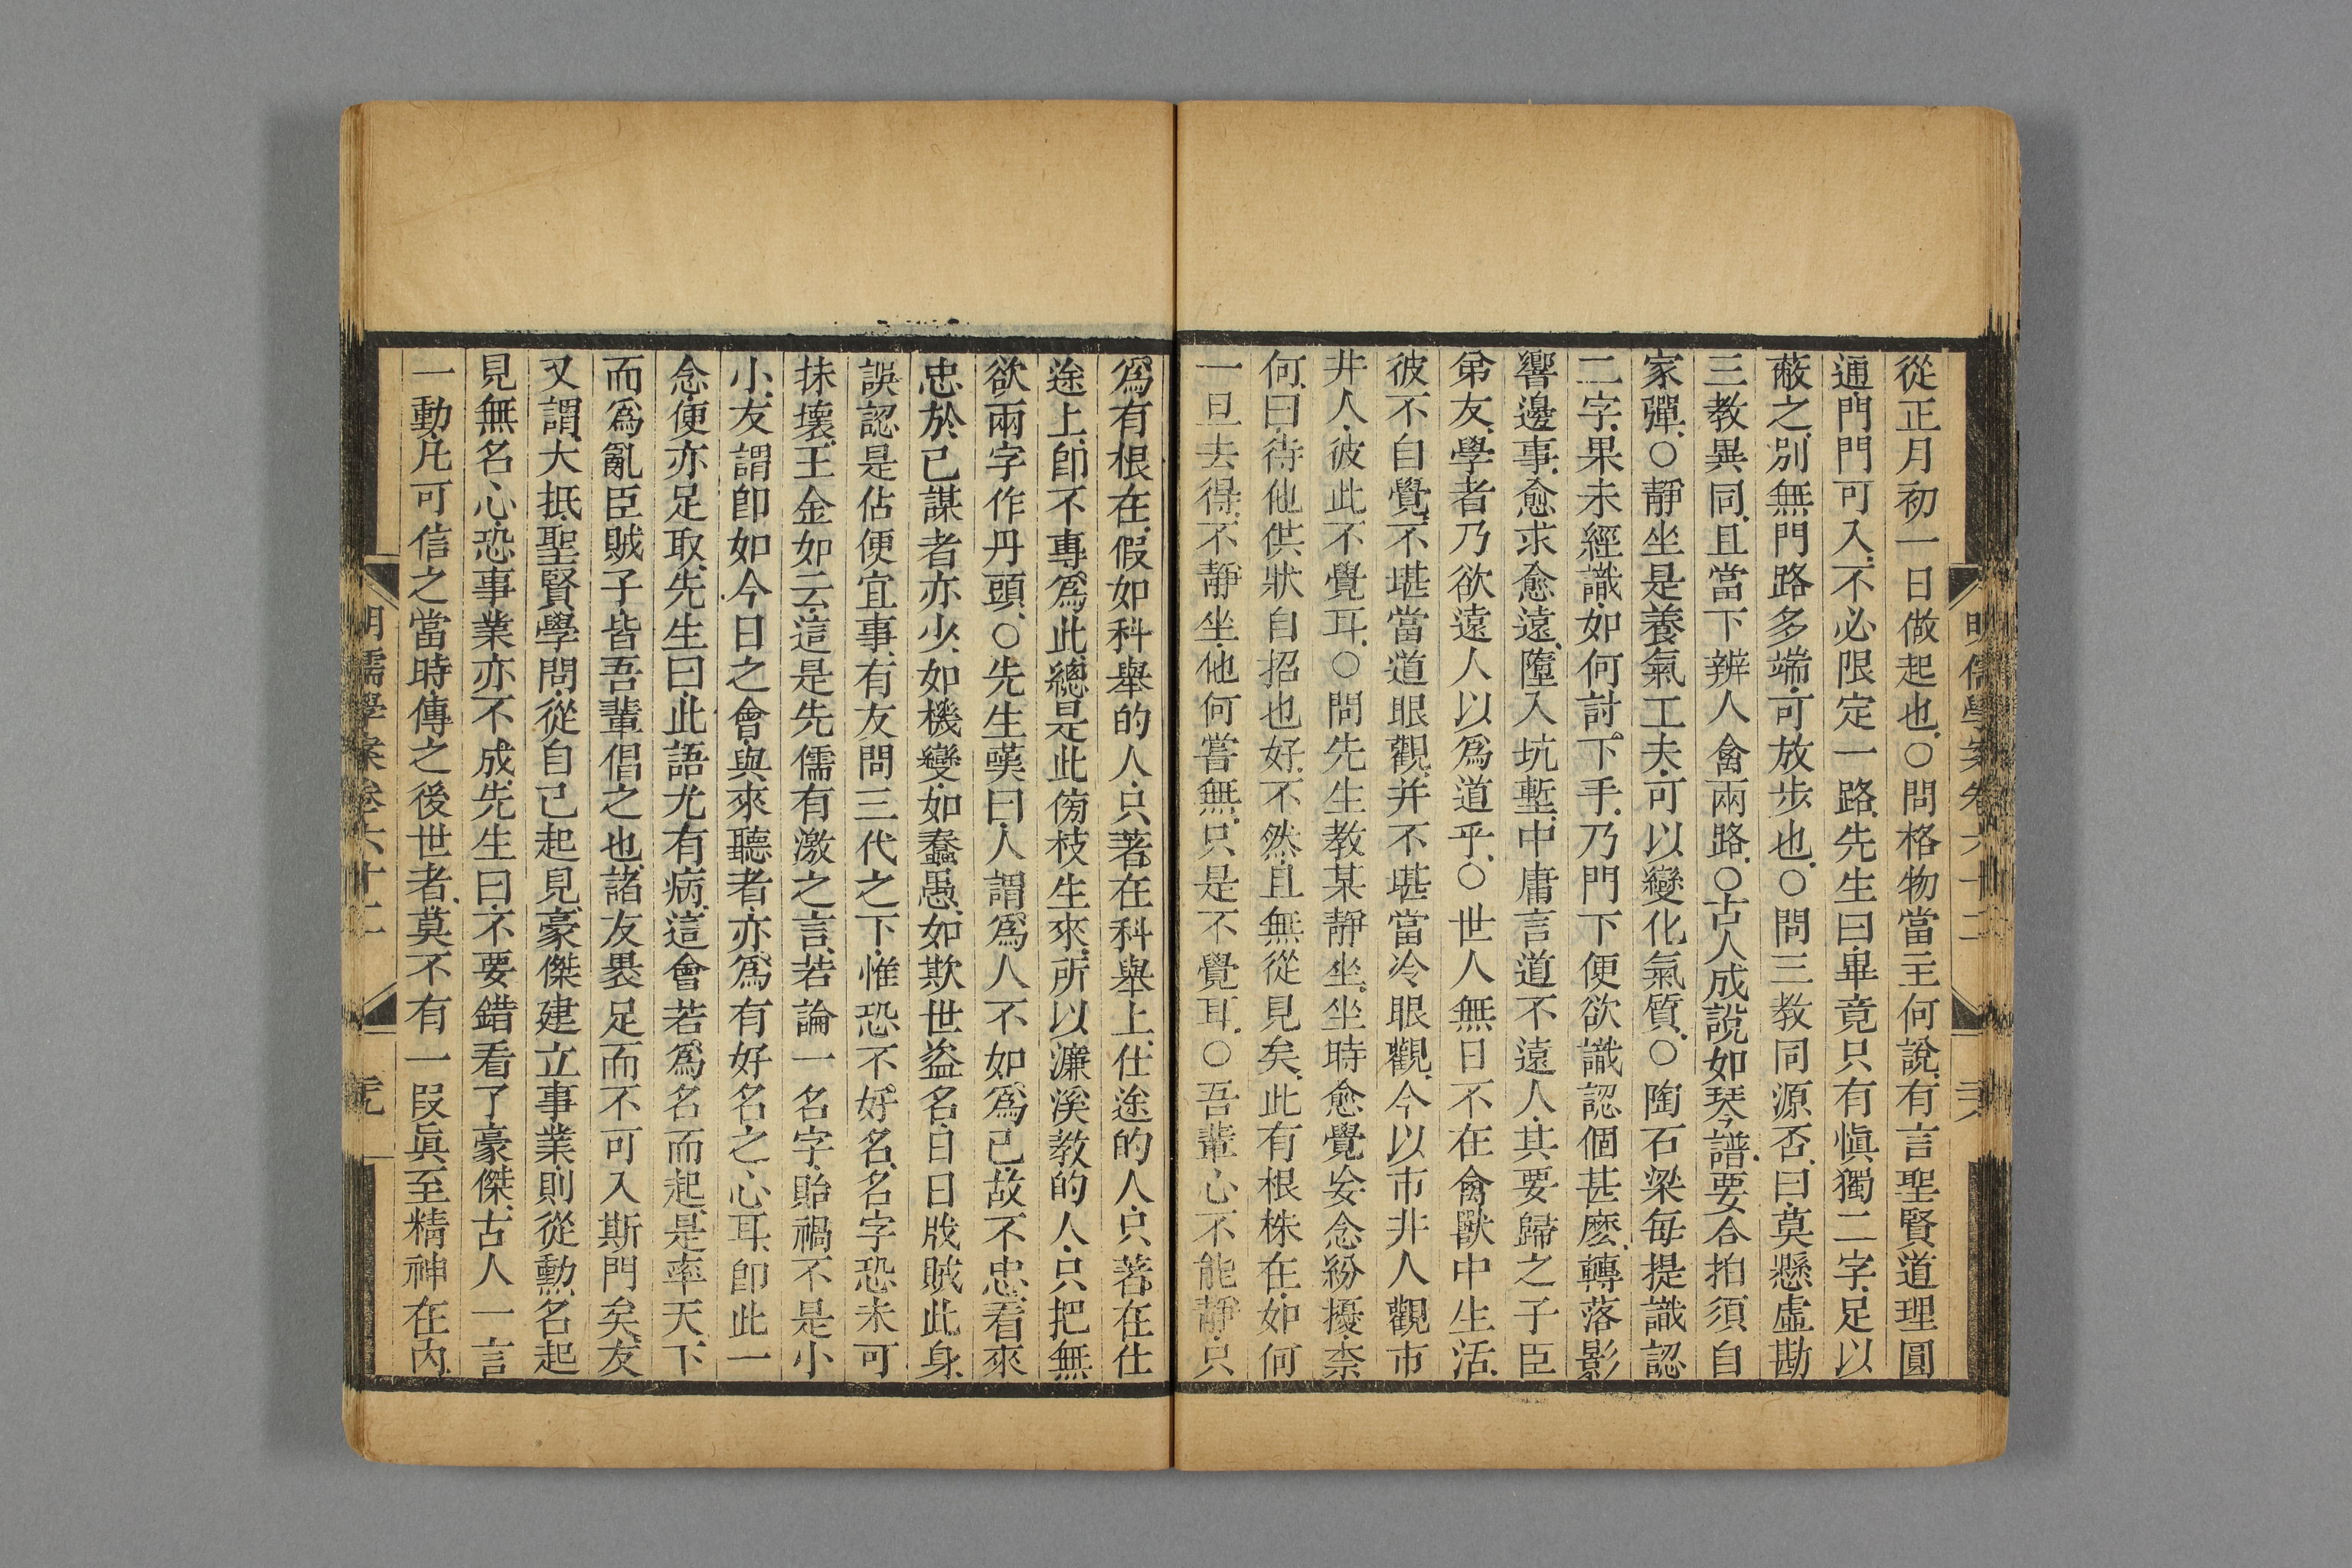 從正月初一日做起也。○問格物當主何說、有言聖賢道理圓
通、門門可入、不必限定一路、先生曰、畢竟只有愼獨二字、足以
蔽之、別無門路多端、可放步也。○問三教同源否、曰、莫懸虛勘
三教異同、且當下辨人禽兩路。○古人成說如琴譜、要合拍須自
家彈。○靜坐是養氣工夫、可以變化氣質。○陶石梁每提識認
二字、果未經識、如何討下手、乃門下便欲識認個甚麽、轉落影
響邊事、愈求愈遠、墮入坑塹、中庸言道不遠人、其要歸之子臣
弟友、學者乃欲遠人以爲道乎。○世人無日不在禽獸中生活、
彼不自覺、不堪當道眼觀、并不堪當冷眼觀、今以市井人觀市
井人、彼此不覺耳。○問先生教某靜坐、坐時愈覺妄念紛擾、柰
何、曰、待他供狀自招也好、不然、且無從見矣、此有根株在、如何
一旦去得、不靜坐、他何嘗無、只是不覺耳。○吾輩心不能靜、只
爲有根在、假如科舉的人、只著在科舉上、仕途的人、只著在仕
途上、卽不專爲此、總是此傍枝生來、所以濂溪教的人、只把無
欲兩字作丹頭。○先生嘆曰、人謂爲人不如爲己、故不忠、看來
忠於己謀者亦少、如機變、如蠢愚、如欺世盜名、日日戕賊此身、
誤認是佔便宜事、有友問三代之下、惟恐不好名、名字恐未可
抹壞、王金如云、這是先儒有激之言、若論一名字、貽禍不是小
小、友謂卽如今日之會、與來聽者、亦爲有好名之心耳、卽此一
念、便亦足取、先生曰、此語尤有病、這會若爲名而起、是率天下
而爲亂臣賊子、皆吾輩倡之也、諸友裹足而不可入斯門矣、友
又謂、大抵聖賢學問、從自己起見、豪傑建立事業、則從勳名起
見、無名心、恐事業亦不成、先生曰、不要錯看了豪傑、古人一言
一動、凡可信之當時、傳之後世者、莫不有一段眞至精神在內、
明儒學案卷六十二